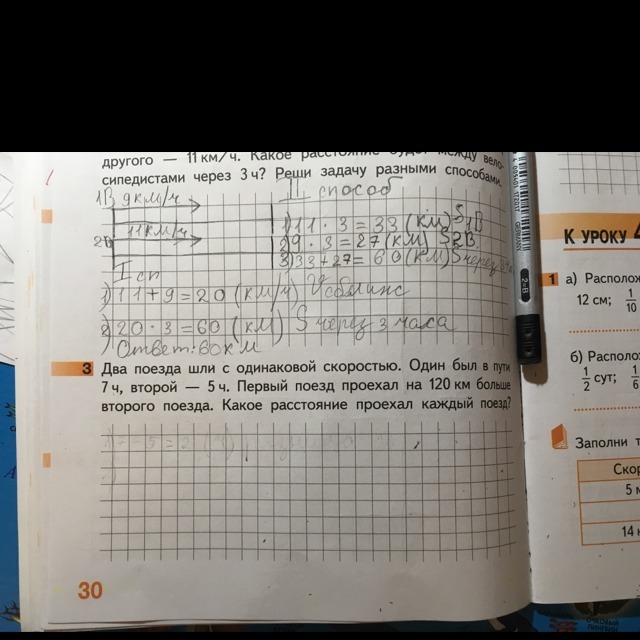 другого — 11 км/ч. Какое расстояние будет между вело-
сипедистами через 3 ч? Реши задачу разными способами.
1В 9км/ч
II способ
2В 11км/ч
1) 11 · 3 = 33 (км) S 1В
2) 9 · 3 = 27 (км) S 2В.
3) 33 + 27 = 60 (км) S через
I сп
1) 11 + 9 = 20 (км/ч)
2) 20 · 3 = 60 (км) S через 3 часа
Ответ: 60 км
3 Два поезда шли с одинаковой скоростью. Один был в пути
7 ч, второй — 5 ч. Первый поезд проехал на 120 км больше
второго поезда. Какое расстояние проехал каждый поезд?
30
К УРОКУ
1 а) Располож
12 см; 1/10
б) Располо
1/2 сут; 1/6
Заполни т
Скор
5 м
14 к